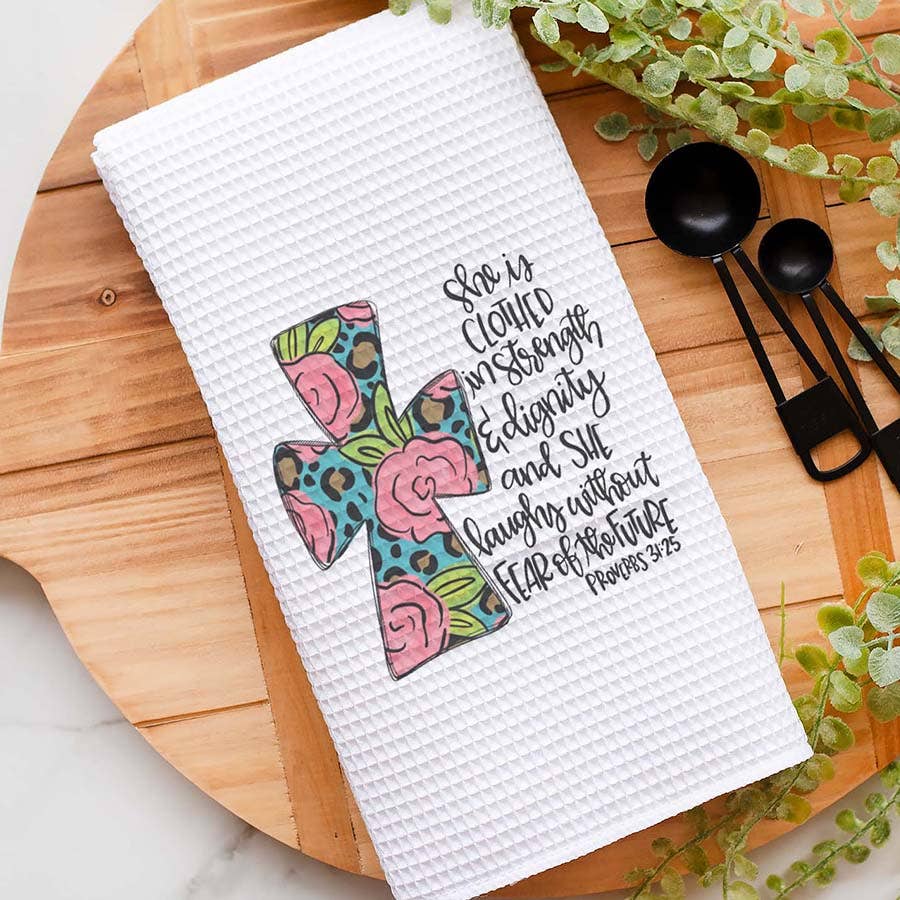 She is
CLOTHED
in strength
& dignity
and SHE
laughs without
FEAR of the FUTURE
PROVERBS 31:25